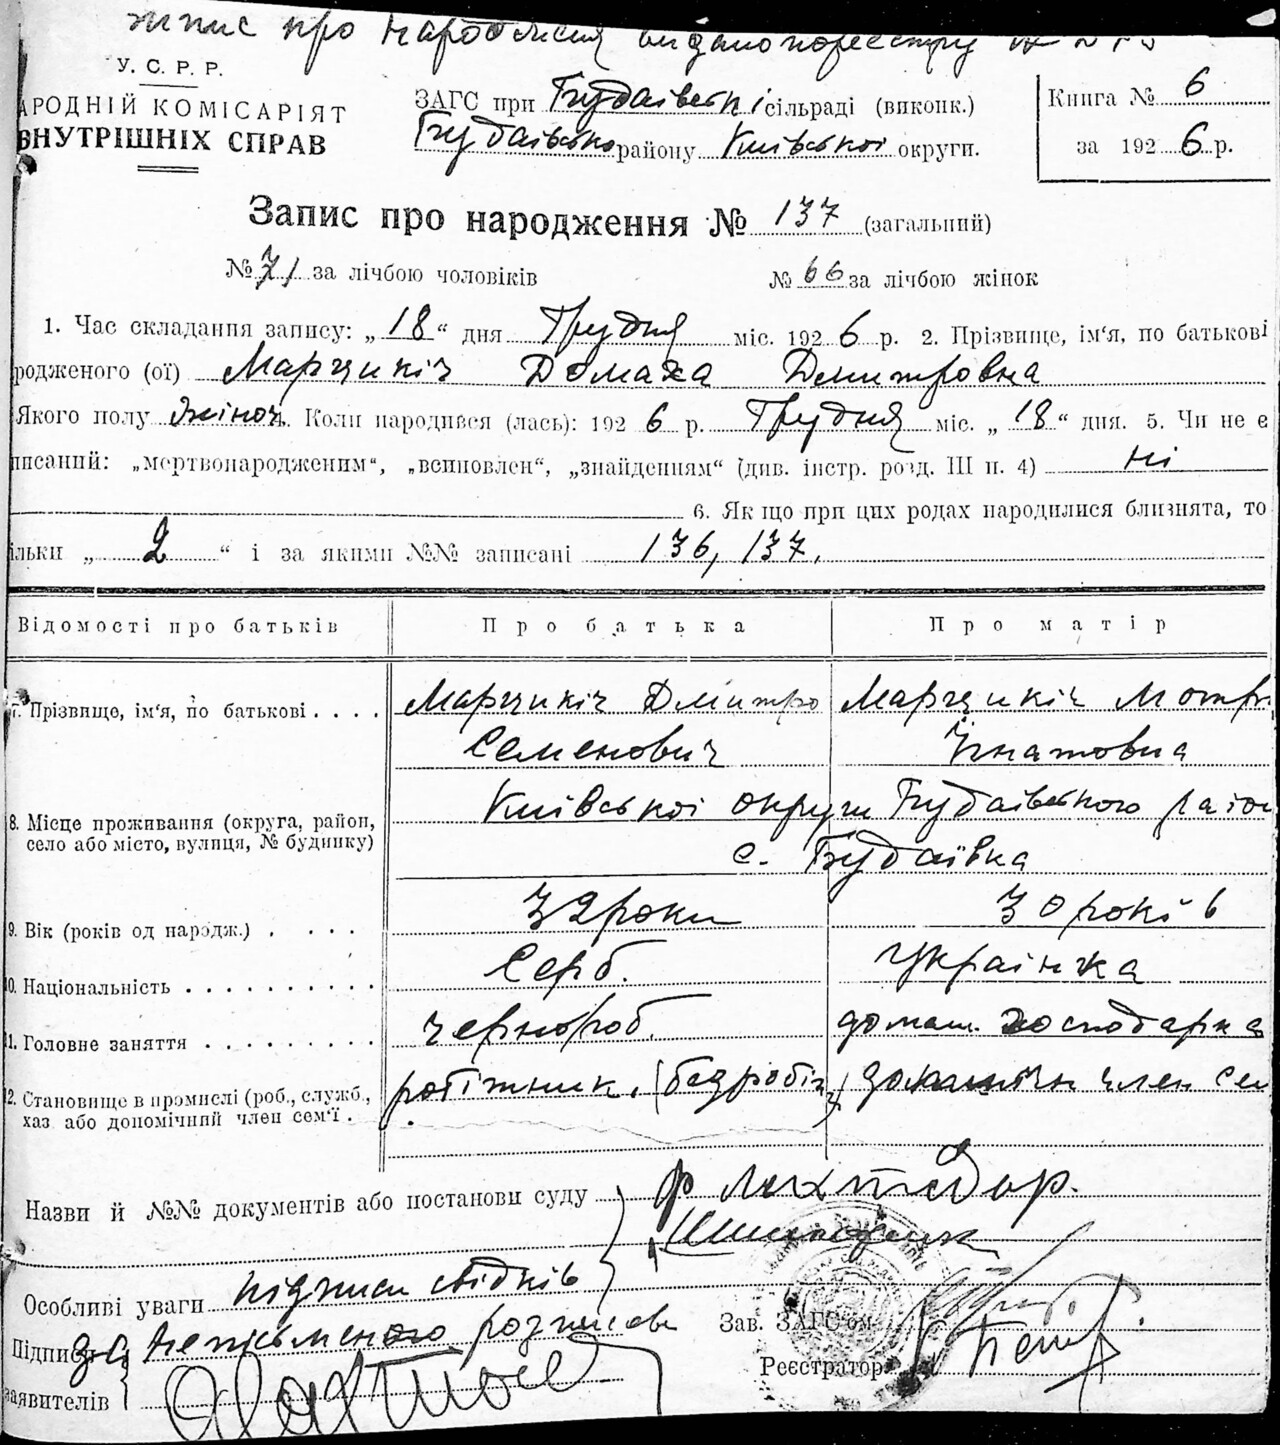 про народження видано по реєстру №
У. С. Р. Р.
АРОДНІЙ КОМІСАРІЯТ
ВНУТРІШНІХ СПРАВ
ЗАГС при Будаївській сільраді (виконк.)
Будаївсько району Київської округи.
Книга № 6
за 192 6 р.
Запис про народження № 137 (загальний)
№ 71 за лічбою чоловіків № 66 за лічбою жінок
1. Час складання запису: „ 18 “ дня Грудня міс. 192 6 р. 2. Прізвище, ім‘я, по батькові
родженого (ої) Марцикіч Домаха Дмитровна
Якого полу жіноч. Коли народився (лась): 192 6 р. Грудня міс. „ 18 “ дня. 5. Чи не є
писаний: „мертвонародженим“, „всиновлен“, „знайденням“ (див. інстр. розд. III п. 4) ні
6. Як що при цих родах народилися близнята, то
ільки „ 2 “ і за якими №№ записані 136, 137.
Відомості про батьків Про батька Про матір
7. Прізвище, ім‘я, по батькові . . . . Марцикіч Дмитро Марцикіч Мотр
Семенович Ігнатовна
8. Місце проживання (округа, район, село або місто, вулиця, № будинку) Київської округи Будаївського район
с. Будаївка
9. Вік (років од народж.) . . . . 32 роки 30 років
10. Національність . . . . . . . . . . Серб. українка
11. Головне заняття . . . . . . . . . чернороб. домаш. господарка
12. Становище в промислі (роб., служб., робітник. (безробіт) член сем
хаз або допомічний член сем‘ї .
Назви й №№ документів або постанови суду
Особливі уваги підписи свідків
Підписи за неписьменого розписав
заявителів
Зав. ЗАГС‘ом
Реєстратор